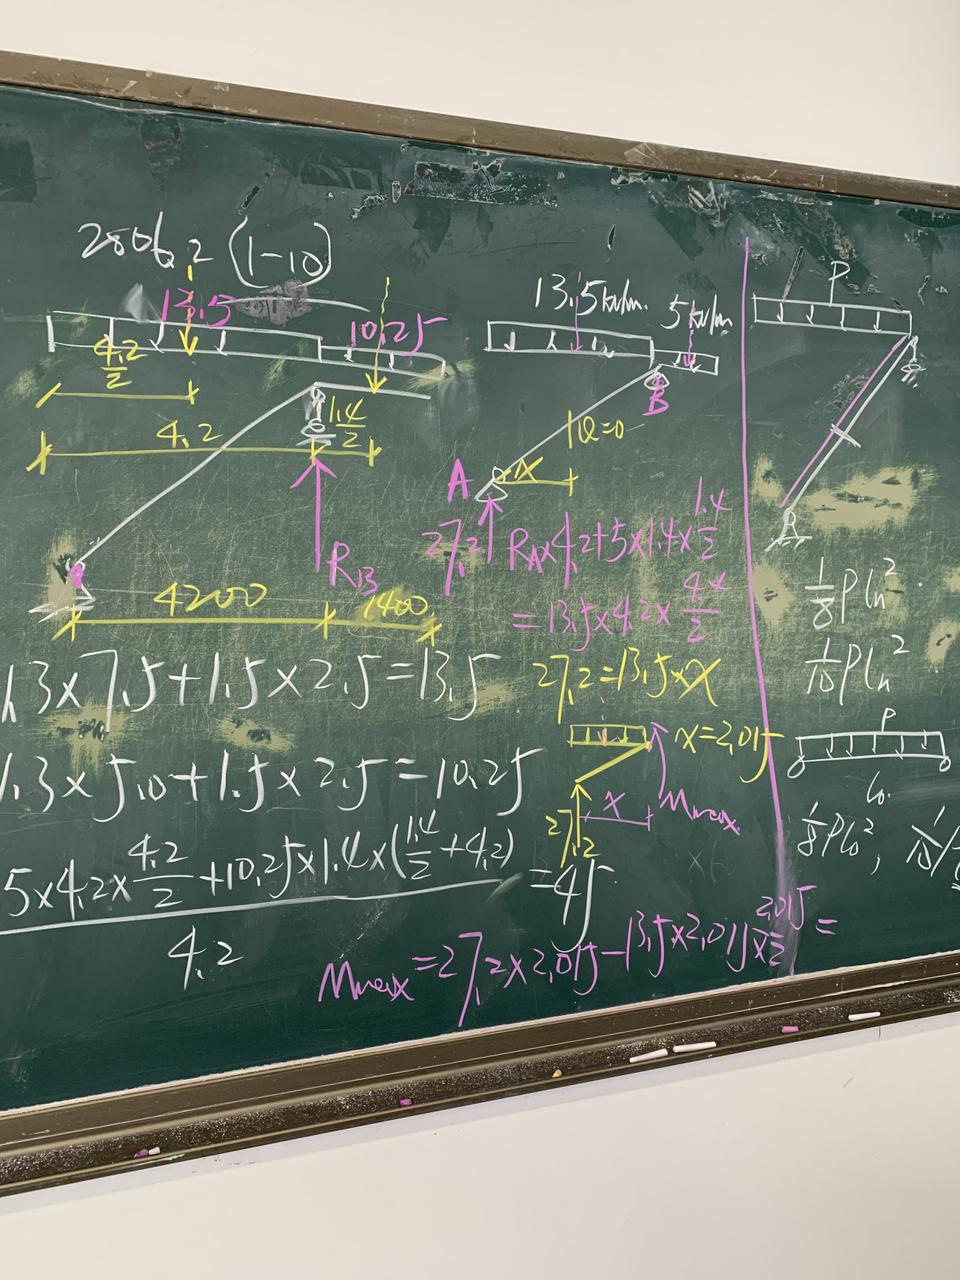 2806.2 (1-10)
13.5
10.25
4.2/2
4.2
1.4/2
R_B
4200
1400
1.3×7.5+1.5×2.5=13.5
1.3×5.0+1.5×2.5=10.25
5×4.2×4.2/2+10.25×1.4×(1.4/2+4.2)
4.2
=45
13.5kN/m
5kN/m
B
Q=0
A
x
27.2
R_A×4.2+5×1.4×1.4/2
=13.5×4.2×4.2/2
27.2=13.5×x
x=2.015
x
Mmax
27.2
Mmax=27.2×2.015-13.5×2.015×2.015/2=
P
1/8Pln²
1/10Pln²
P
l₀
1/8Pl₀², 1/10